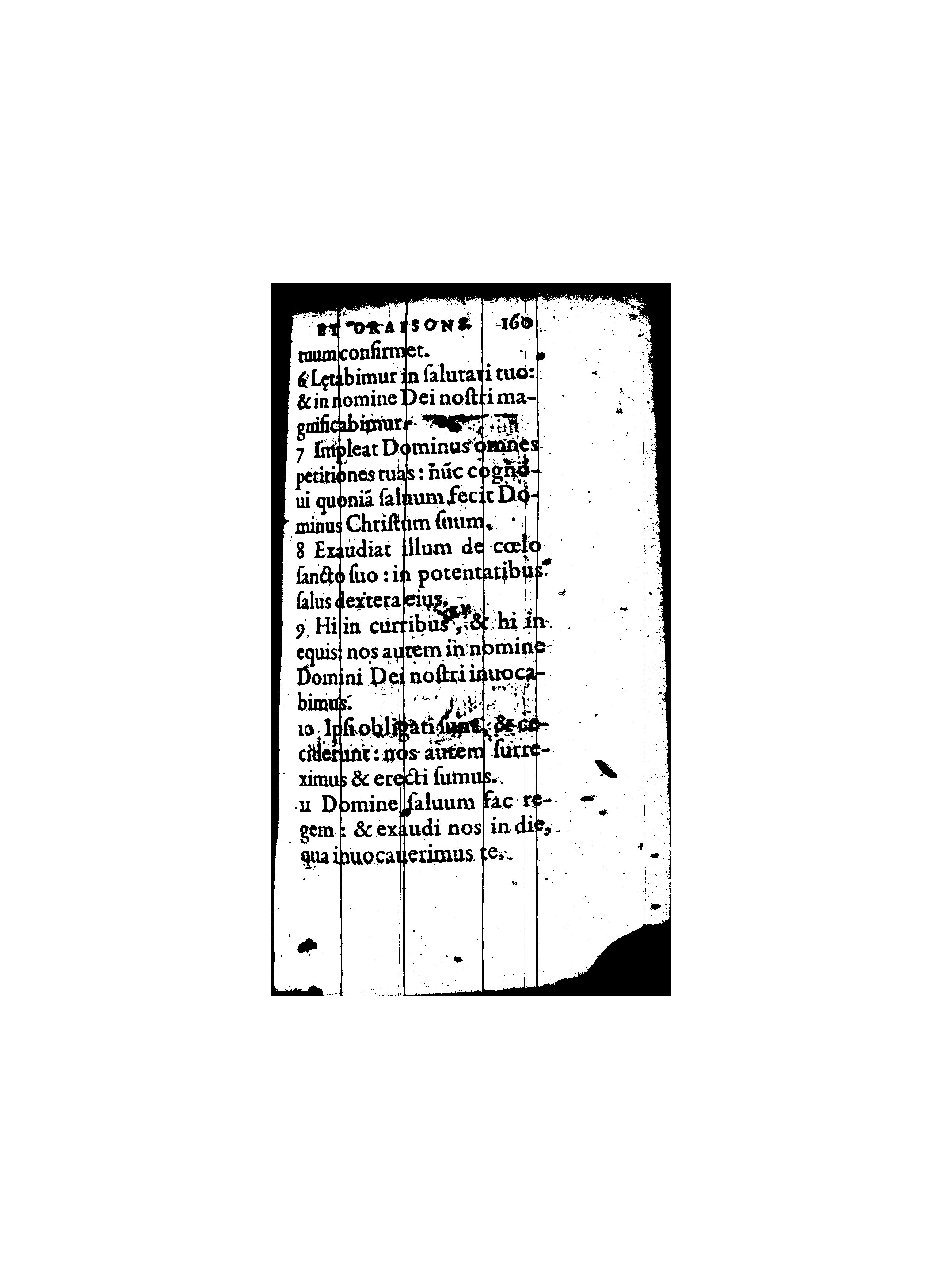 ET ORAISONS. 160
tuum confirmet.
6 Lętabimur in ſalutari tuo:
& in nomine Dei noſtri ma-
gnificabimur.
7 Impleat Dominus omnes
petitiones tuas : nũc cogno-
ui quoniã ſaluum fecit Do-
minus Chriſtum ſuum.
8 Exaudiat illum de cœlo
ſancto ſuo : in potentatibus
ſalus dextera eius.
9 Hi in curribus, & hi in
equis: nos autem in nomine
Domini Dei noſtri inuoca-
bimus.
10 Ipſi obligati ſunt, & ce-
ciderunt : nos autem ſurre-
ximus & erecti ſumus.
11 Domine ſaluum fac re-
gem : & exaudi nos in die,
qua inuocauerimus te.